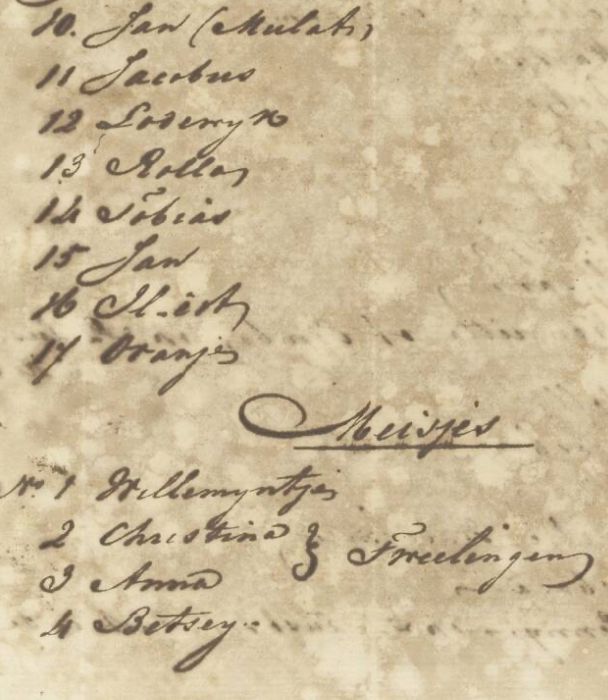 10. Jan (Mulat)
11 Jacobus
12 Lodewyk
13 Rolla
14 Tobias
15 Jan
16
17 Oranje
Meisjes
No 1 Willemyntje
2 Christina } Tweelingen
3 Anna
4 Betsey